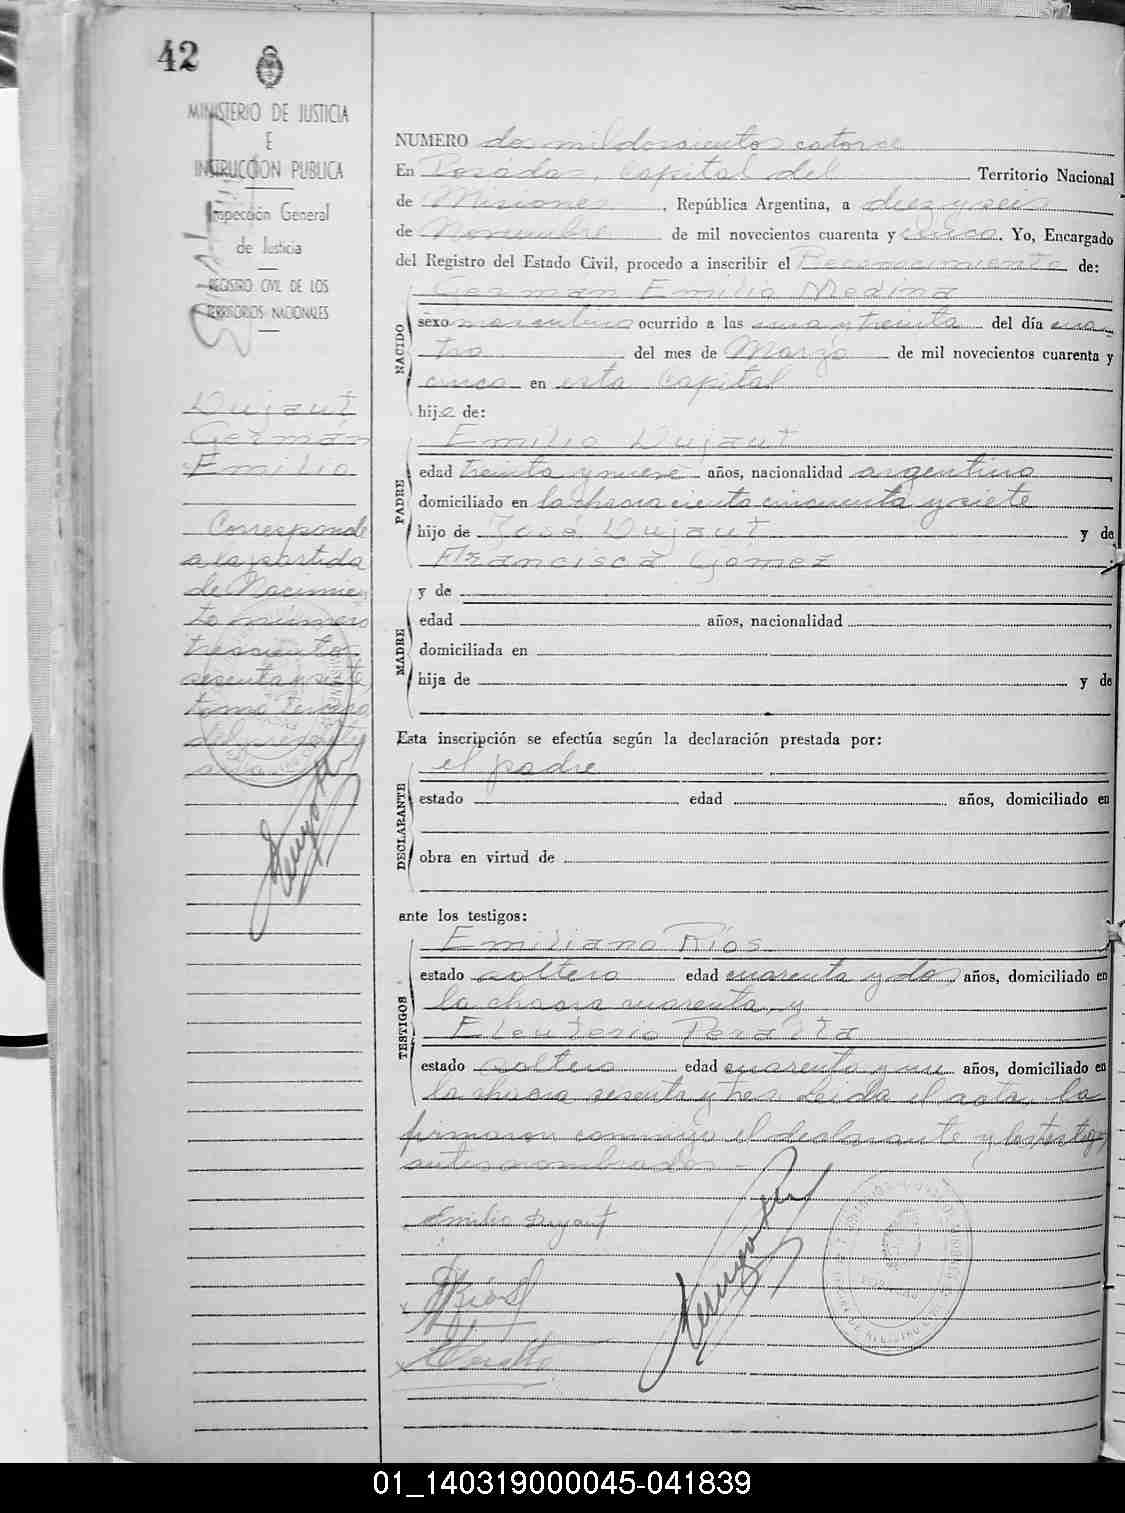 42
MINISTERIO DE JUSTICIA
E
INSTRUCCION PUBLICA
Inspección General
de Justicia
REGISTRO CIVIL DE LOS
TERRITORIOS NACIONALES
Dujaut
Germán
Emilio
Corresponde
a la partida
de Nacimien
to número
trescientos
sesenta y siete
tomo tercero
del presente
NUMERO dos mil doscientos catorce
En Posadas, Capital del Territorio Nacional
de Misiones, República Argentina, a diez y seis
de Noviembre de mil novecientos cuarenta y cinco. Yo, Encargado
del Registro del Estado Civil, procedo a inscribir el Reconocimiento de:
NACIDO
German Emilio Medina
sexo masculino ocurrido a las una y treinta del día cua
tro del mes de Marzo de mil novecientos cuarenta y
cinco en esta Capital
hijo de:
PADRE
Emilio Dujaut
edad treinta y nueve años, nacionalidad argentino
domiciliado en la chacra ciento cincuenta y siete
hijo de José Dujaut y de
Francisca Gómez
MADRE
y de
edad años, nacionalidad
domiciliada en
hija de y de
Esta inscripción se efectúa según la declaración prestada por:
DECLARANTE
el padre
estado edad años, domiciliado en
obra en virtud de
ante los testigos:
TESTIGOS
Emiliano Ríos
estado soltero edad cuarenta y dos años, domiciliado en
la chacra cuarenta y
Eleuterio Peralta
estado soltero edad cuarenta y un años, domiciliado en
la chacra sesenta y tres. Leida el acta, la
firmaron conmigo el declarante y los testigos
antes nombrados.-
Emilio Dujaut
01_140319000045-041839